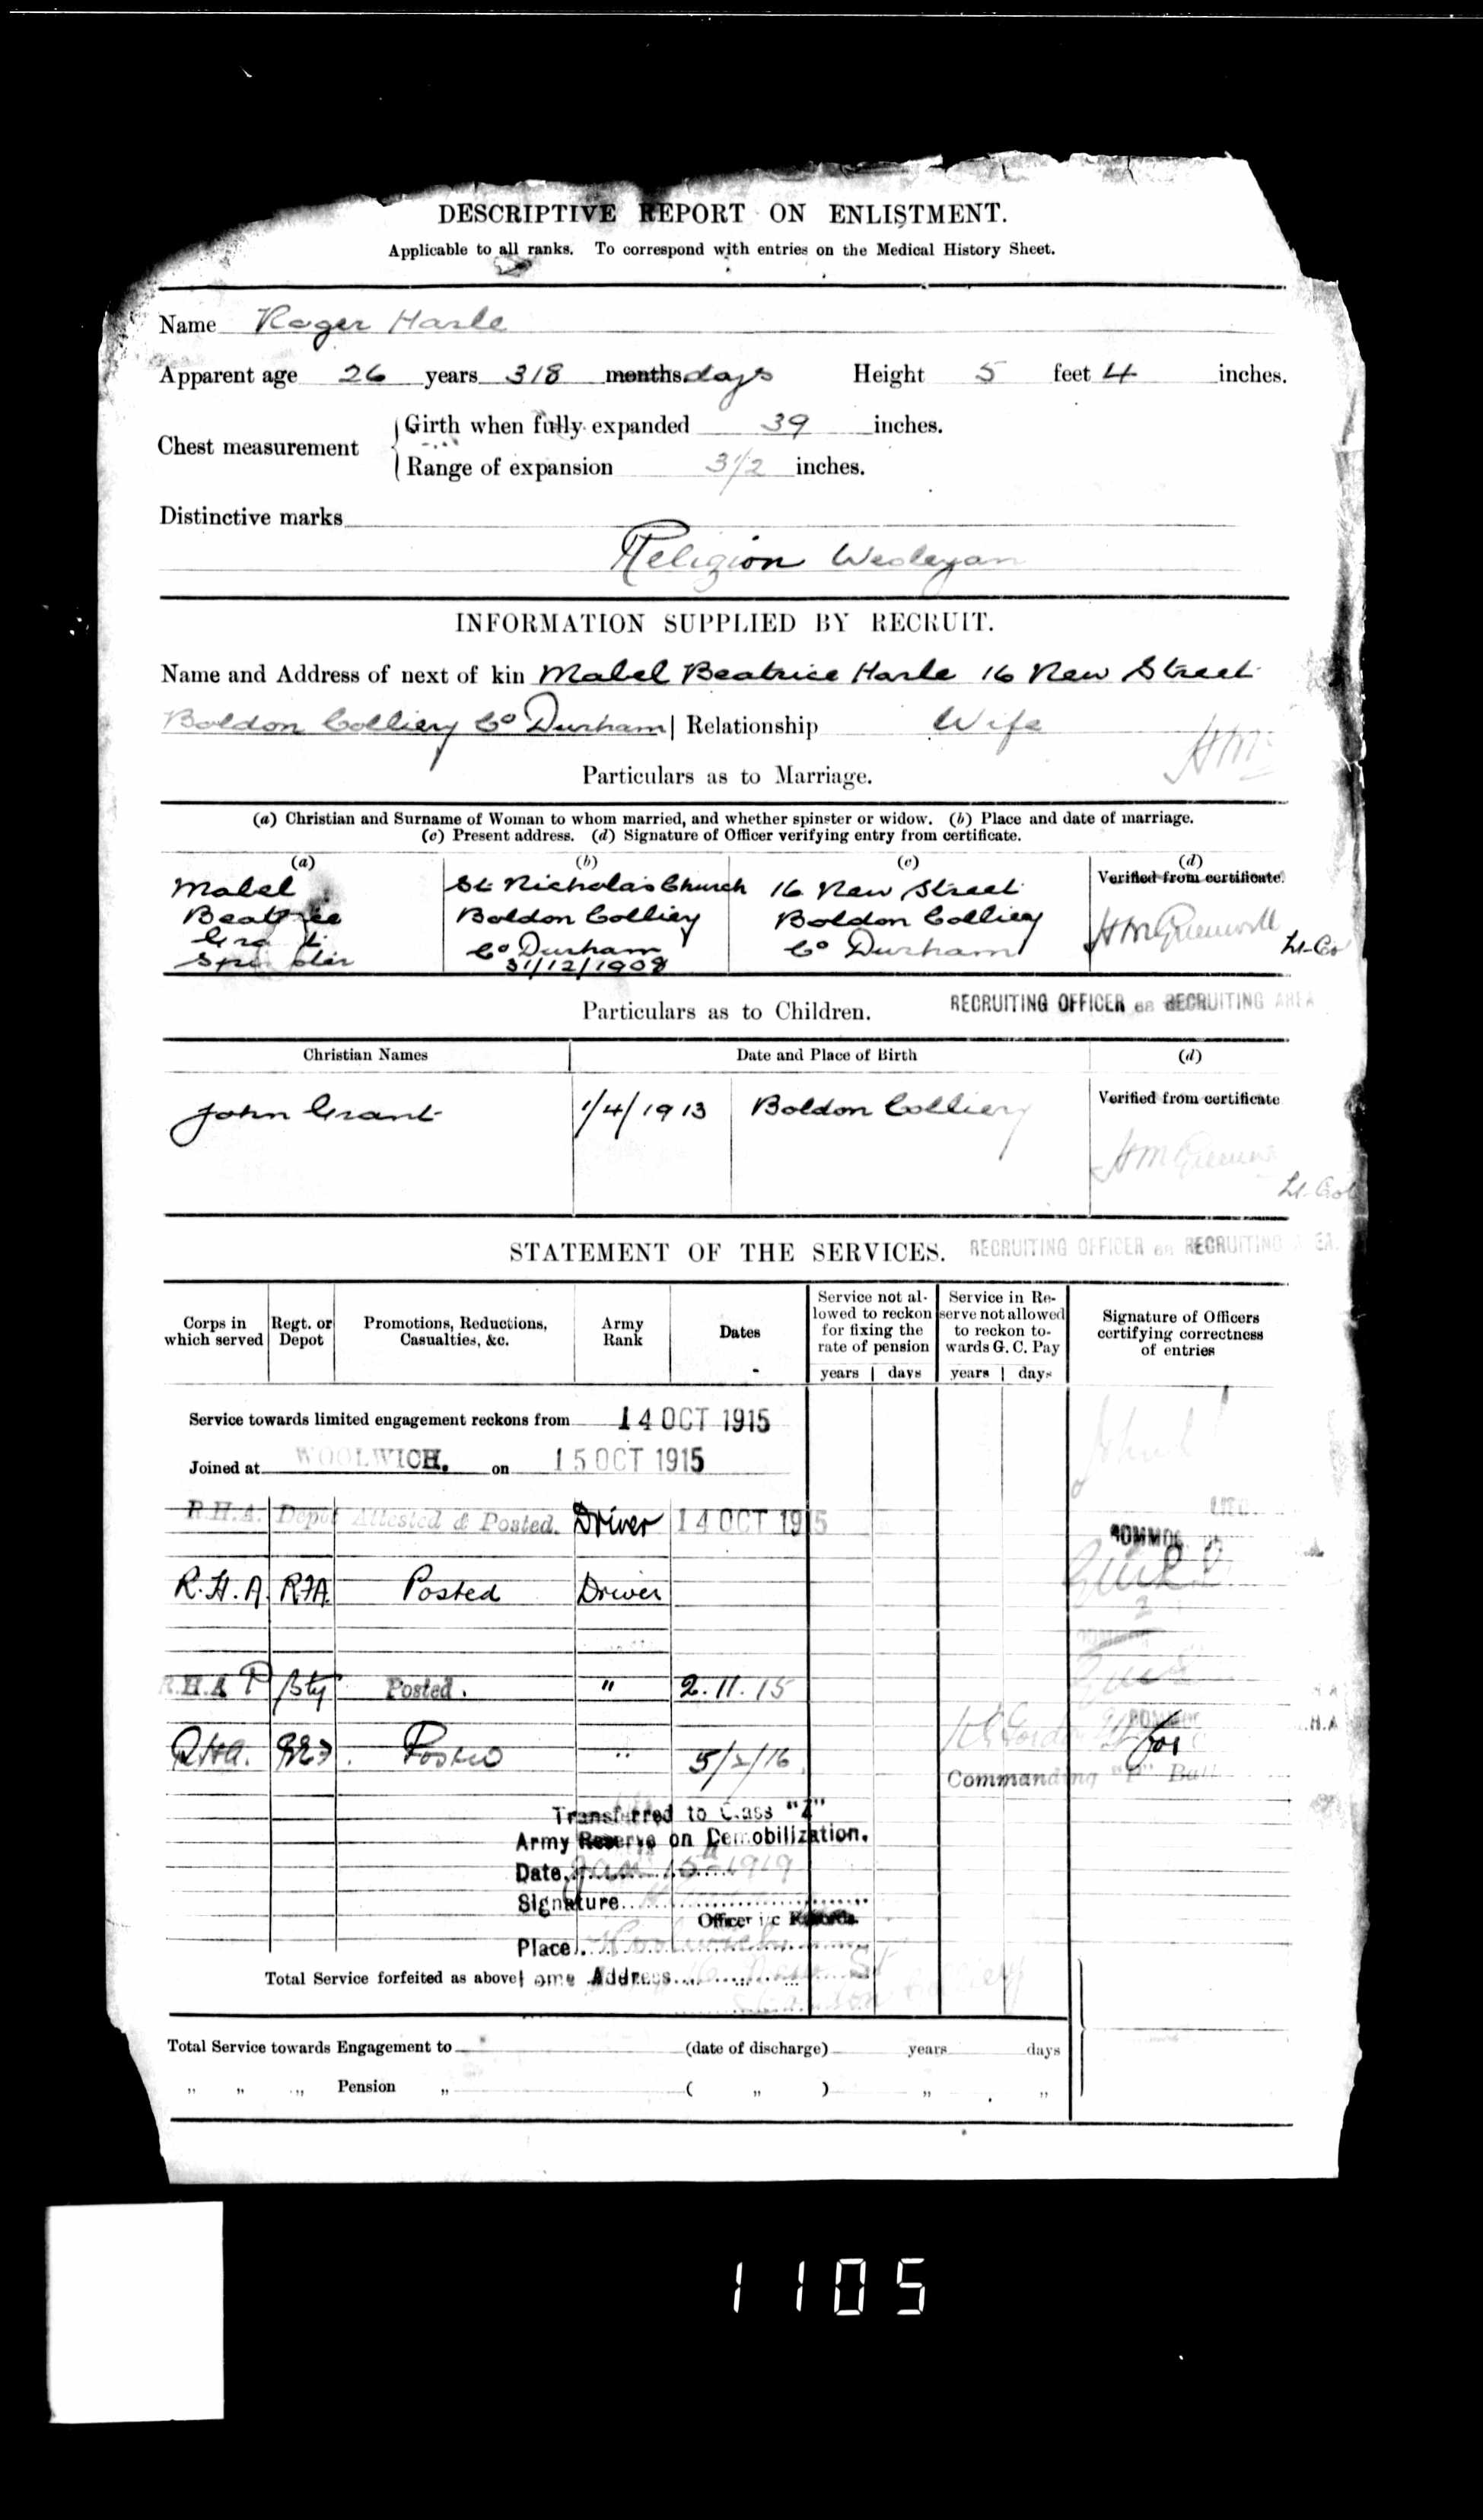 DESCRIPTIVE REPORT ON ENLISTMENT.
Applicable to all ranks. To correspond with entries on the Medical History Sheet.
Name Roger Harle
Apparent age 26 years 318 months days Height 5 feet 4 inches.
Chest measurement
Girth when fully expanded 39 inches.
Range of expansion 3 1/2 inches.
Distinctive marks
Religion Wesleyan
INFORMATION SUPPLIED BY RECRUIT.
Name and Address of next of kin Mabel Beatrice Harle 16 New Street
Boldon Colliery Co Durham | Relationship Wife
Particulars as to Marriage.
(a) Christian and Surname of Woman to whom married, and whether spinster or widow. (b) Place and date of marriage.
(c) Present address. (d) Signature of Officer verifying entry from certificate.
(a) (b) (c) (d)
Mabel St Nicholas Church 16 New Street Verified from certificate.
Beatrice Boldon Colliery Boldon Colliery
Co Durham Co Durham Lt-Co
Spinster 31/12/1908
Particulars as to Children. RECRUITING OFFICER RECRUITING AREA
Christian Names Date and Place of Birth (d)
John Grant 1/4/1913 Boldon Colliery Verified from certificate
Lt-Col
STATEMENT OF THE SERVICES. RECRUITING OFFICER RECRUITING AREA.
Corps in which served
Regt. or Depot
Promotions, Reductions, Casualties, &c.
Army Rank
Dates
Service not allowed to reckon for fixing the rate of pension
years days
Service in Reserve not allowed to reckon towards G. C. Pay
years days
Signature of Officers certifying correctness of entries
Service towards limited engagement reckons from 14 OCT 1915
Joined at WOOLWICH. on 15 OCT 1915
R.H.A. Depot Attested & Posted. Driver 14 OCT 1915
R.H.A. RFA Posted Driver
R.H.A P Bty Posted. " 2.11.15
RHA. Posted "
for
Commanding "P" Batt
Transferred to Class "Z"
Army Reserve on Demobilization.
Date 1919
Signature
Officer i/c Records.
Place
Total Service forfeited as above
ome Address
Total Service towards Engagement to (date of discharge) years days
" " " Pension " ( " ) " "
1105